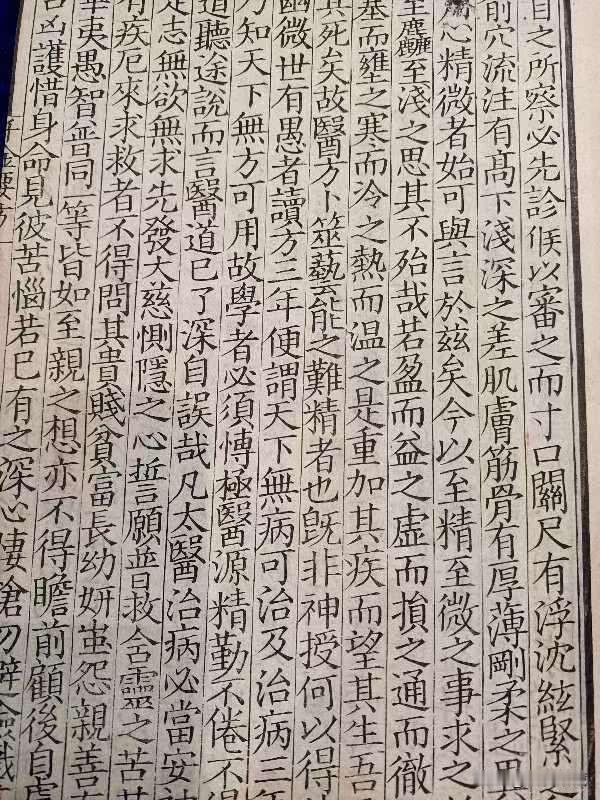 目之所察必先診候以審之而寸口關尺有浮沈絃緊之
前穴流注有髙下淺深之差肌膚筋骨有厚薄剛柔之異
心精微者始可與言於兹矣今以至精至微之事求之
至麤至淺之思其不殆哉若盈而益之虛而損之通而徹
塞而壅之寒而冷之熱而温之是重加其疾而望其生吾
其死矣故醫方卜筮藝能之難精者也旣非神授何以得
幽微世有愚者讀方三年便謂天下無病可治及治病三年
乃知天下無方可用故學者必須博極醫源精勤不倦不得
道聽途說而言醫道已了深自誤哉凡太醫治病必當安神
定志無欲無求先發大慈惻隱之心誓願普救含靈之苦
有疾厄來求救者不得問其貴賤貧富長幼妍蚩怨親善友
華夷愚智普同一等皆如至親之想亦不得瞻前顧後自慮
吉凶護惜身命見彼苦惱若已有之深心悽愴勿避嶮巇